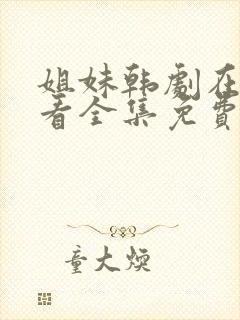 姐妹韩剧在
看全集免费
童大焕